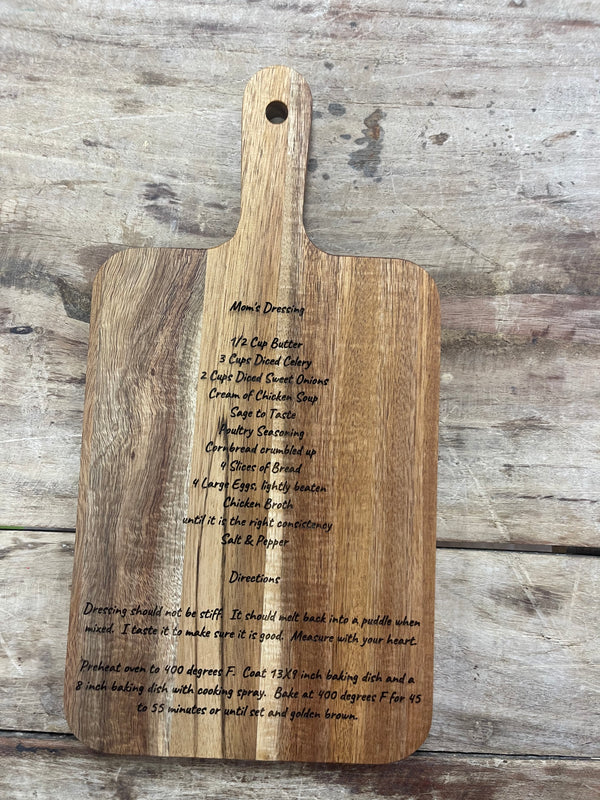 Mom's Dressing
1/2 Cup Butter
3 Cups Diced Celery
2 Cups Diced Sweet Onions
Cream of Chicken Soup
Sage to Taste
Poultry Seasoning
Cornbread crumbled up
4 Slices of Bread
4 Large Eggs, lightly beaten
Chicken Broth
until it is the right consistency
Salt & Pepper
Directions
Dressing should not be stiff. It should melt back into a puddle when
mixed. I taste it to make sure it is good. Measure with your heart.
Preheat oven to 400 degrees F. Coat 13X9 inch baking dish and a
8 inch baking dish with cooking spray. Bake at 400 degrees F for 45
to 55 minutes or until set and golden brown.